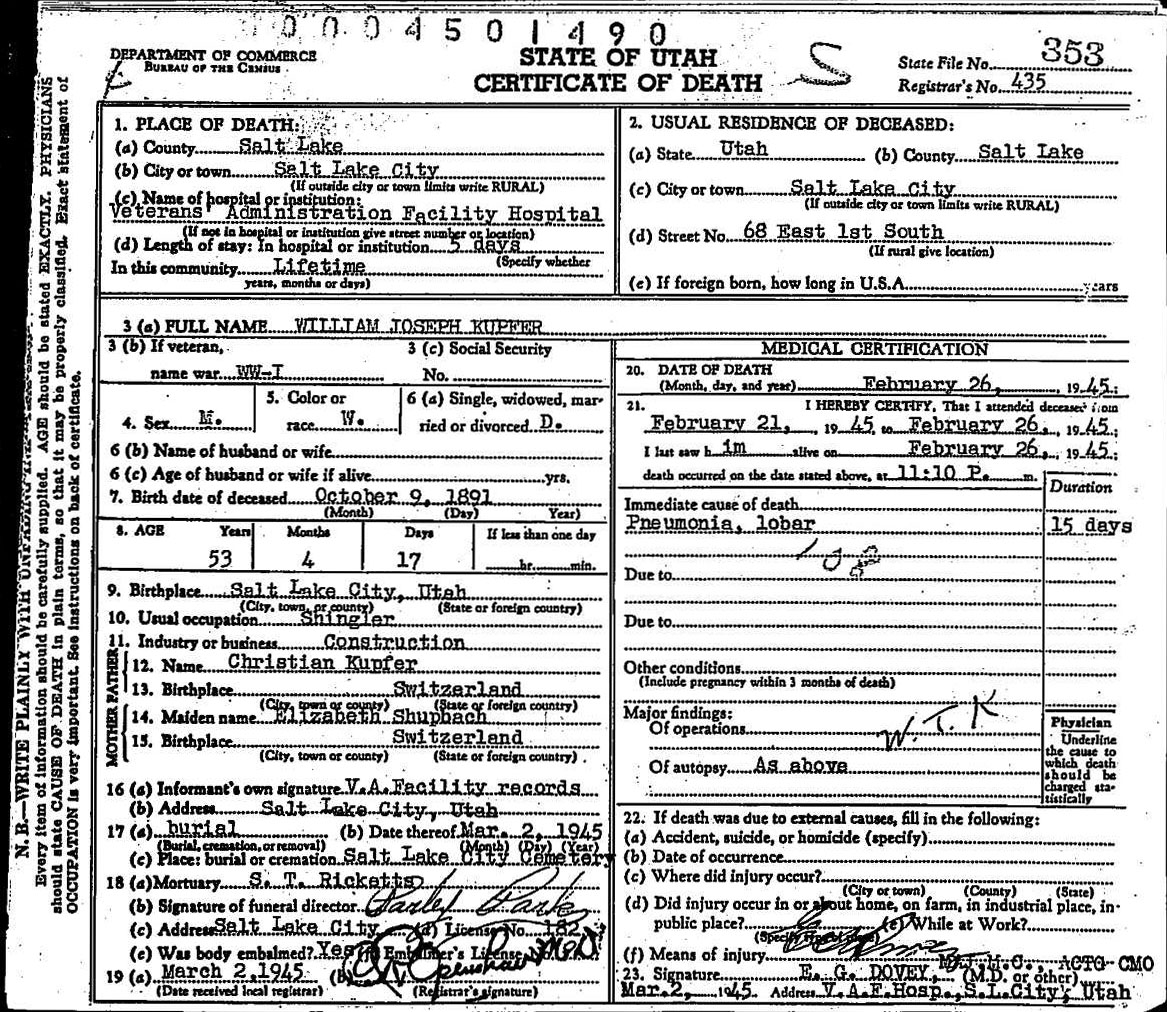 0004501490
DEPARTMENT OF COMMERCE
BUREAU OF THE CENSUS
STATE OF UTAH
CERTIFICATE OF DEATH
S
State File No. 353
Registrar's No. 435
N. B.—WRITE PLAINLY WITH UNFADING
Every item of information should be carefully supplied. AGE should be stated EXACTLY. PHYSICIANS
should state CAUSE OF DEATH in plain terms, so that it may be properly classified. Exact statement of
OCCUPATION is very important. See instructions on back of certificate.
1. PLACE OF DEATH:
(a) County Salt Lake
(b) City or town Salt Lake City
(If outside city or town limits write RURAL)
(c) Name of hospital or institution:
Veterans' Administration Facility Hospital
(If not in hospital or institution give street number or location)
(d) Length of stay: In hospital or institution 5 days
(Specify whether
In this community Lifetime
years, months or days)
2. USUAL RESIDENCE OF DECEASED:
(a) State Utah (b) County Salt Lake
(c) City or town Salt Lake City
(If outside city or town limits write RURAL)
(d) Street No. 68 East 1st South
(If rural give location)
(e) If foreign born, how long in U.S.A. years
3 (a) FULL NAME WILLIAM JOSEPH KUPFER
3 (b) If veteran, 3 (c) Social Security
name war WW-I No.
4. Sex M. 5. Color or race W. 6 (a) Single, widowed, married or divorced D.
6 (b) Name of husband or wife
6 (c) Age of husband or wife if alive yrs.
7. Birth date of deceased October 9, 1891
(Month) (Day) Year)
8. AGE Years Months Days If less than one day
53 4 17 hr. min.
9. Birthplace Salt Lake City, Utah
(City, town, or county) (State or foreign country)
10. Usual occupation Shingler
11. Industry or business Construction
FATHER
12. Name Christian Kupfer
13. Birthplace Switzerland
(City, town or county) (State or foreign country)
MOTHER
14. Maiden name Elizabeth Shupbach
15. Birthplace Switzerland
(City, town or county) (State or foreign country)
16 (a) Informant's own signature V.A.Facility records
(b) Address Salt Lake City, Utah
17 (a) burial (b) Date thereof Mar. 2, 1945
(Burial, cremation, or removal) (Month) (Day) (Year)
(c) Place: burial or cremation Salt Lake City Cemetery
18 (a) Mortuary S. T. Ricketts
(b) Signature of funeral director
(c) Address Salt Lake City (d) License No. 182
(e) Was body embalmed? Yes (f) Embalmer's License No.
19 (a) March 2, 1945 (b)
(Date received local registrar) (Registrar's signature)
MEDICAL CERTIFICATION
20. DATE OF DEATH
(Month, day, and year) February 26, 1945.
21. I HEREBY CERTIFY, That I attended deceased from
February 21, 1945 to February 26, 1945;
I last saw him alive on February 26, 1945;
death occurred on the date stated above, at 11:10 P. m.
Duration
Immediate cause of death
Pneumonia, lobar 15 days
108
Due to
Due to
Other conditions
(Include pregnancy within 3 months of death)
Major findings:
Of operations W. T. K
Of autopsy As above
Physician
Underline
the cause to
which death
should be
charged sta-
tistically
22. If death was due to external causes, fill in the following:
(a) Accident, suicide, or homicide (specify)
(b) Date of occurrence
(c) Where did injury occur?
(City or town) (County) (State)
(d) Did injury occur in or about home, on farm, in industrial place, in
public place? (e) While at Work?
(f) Means of injury
ACTG CMO
23. Signature E. G. DOVEY, (M.D. or other)
Mar.2, 1945. Address V.A.F.Hosp., S.L.City, Utah